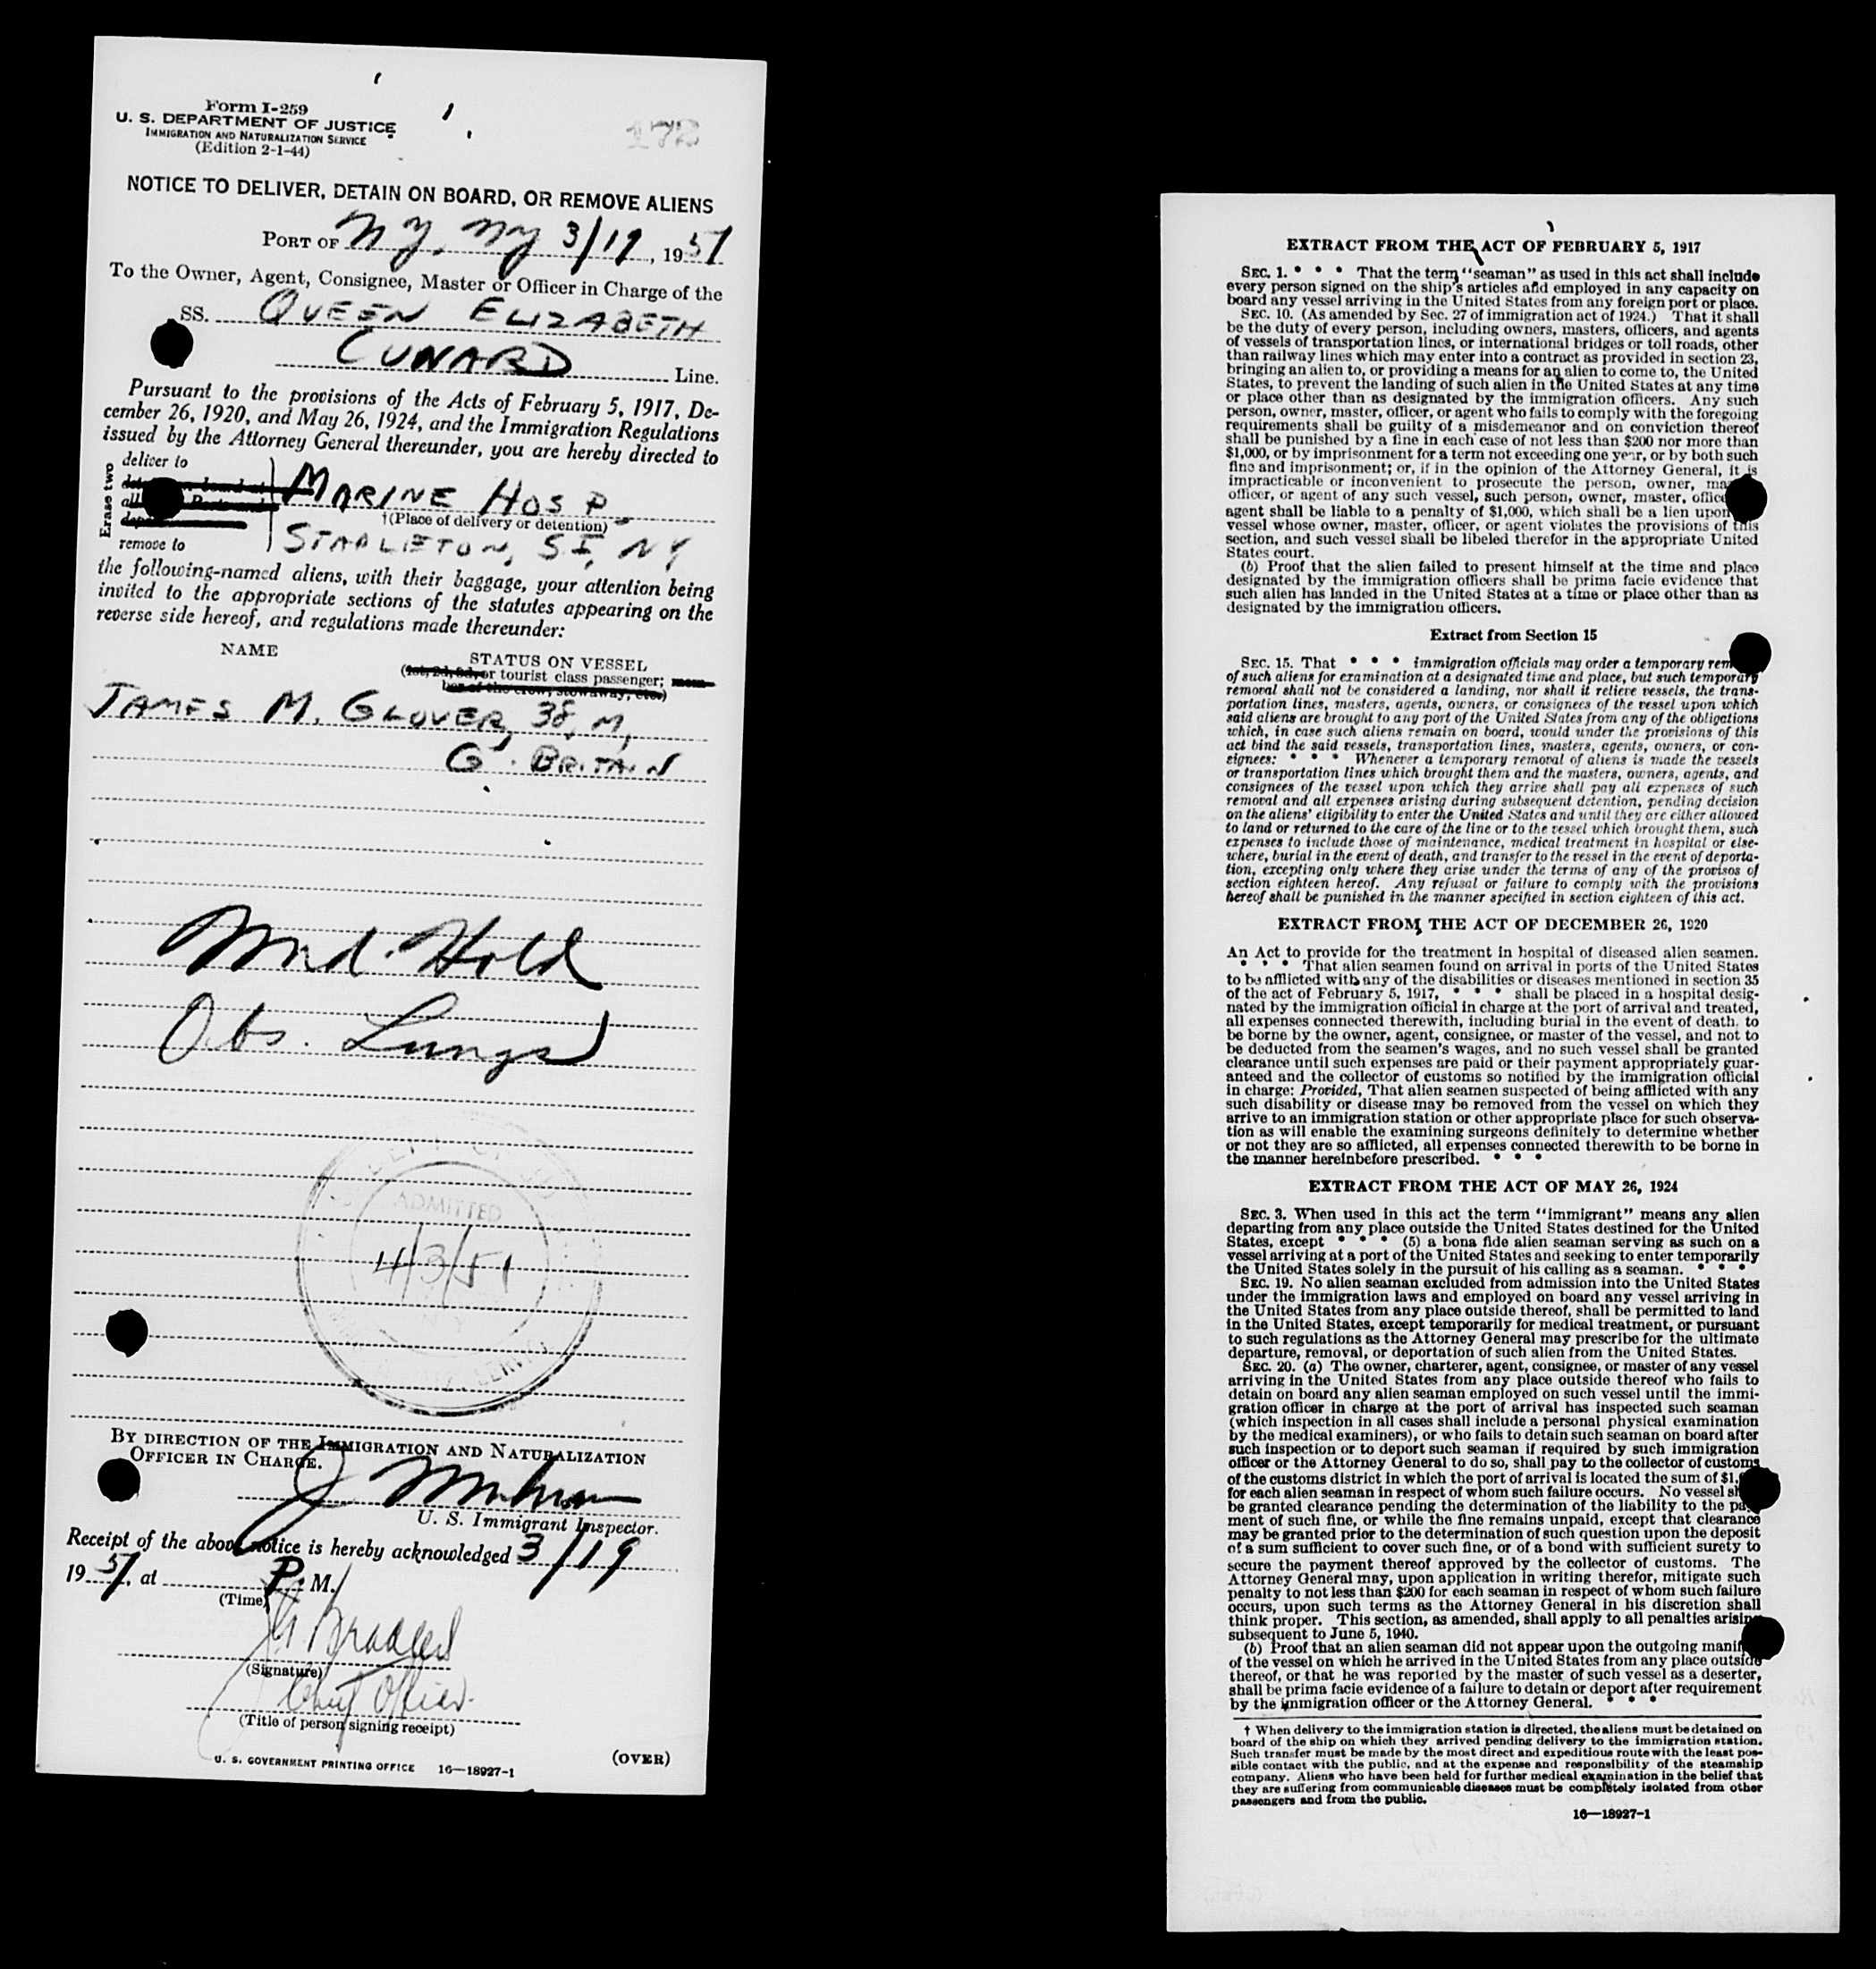 Form I-259
U. S. DEPARTMENT OF JUSTICE
IMMIGRATION AND NATURALIZATION SERVICE
(Edition 2-1-44)
172
NOTICE TO DELIVER, DETAIN ON BOARD, OR REMOVE ALIENS
PORT OF N Y, NY 3/19, 1951
To the Owner, Agent, Consignee, Master or Officer in Charge of the
SS. QUEEN ELIZABETH
CUNARD Line.
Pursuant to the provisions of the Acts of February 5, 1917, De-
cember 26, 1920, and May 26, 1924, and the Immigration Regulations
issued by the Attorney General thereunder, you are hereby directed to
Erase two
deliver to
MARINE HOSP.
†(Place of delivery or detention)
remove to
STAPLETON, S I, NY
the following-named aliens, with their baggage, your attention being
invited to the appropriate sections of the statutes appearing on the
reverse side hereof, and regulations made thereunder:
NAME
STATUS ON VESSEL
(1st, 2d, 3d, or tourist class passenger; mem-
ber of the crew, stowaway, etc.)
JAMES M. GLOVER, 38, M,
G. BRITAIN
Med. Hold
Obs. Lungs
ADMITTED
4/3/51
N. Y.
BY DIRECTION OF THE IMMIGRATION AND NATURALIZATION
OFFICER IN CHARGE.
U. S. Immigrant Inspector.
Receipt of the above notice is hereby acknowledged 3/19
1951, at P. M.
(Time)
(Signature)
Chief Officer.
(Title of person signing receipt)
U. S. GOVERNMENT PRINTING OFFICE 16—18927-1
(OVER)
EXTRACT FROM THE ACT OF FEBRUARY 5, 1917
SEC. 1. * * * That the term "seaman" as used in this act shall include
every person signed on the ship's articles and employed in any capacity on
board any vessel arriving in the United States from any foreign port or place.
SEC. 10. (As amended by Sec. 27 of immigration act of 1924.) That it shall
be the duty of every person, including owners, masters, officers, and agents
of vessels of transportation lines, or international bridges or toll roads, other
than railway lines which may enter into a contract as provided in section 23,
bringing an alien to, or providing a means for an alien to come to, the United
States, to prevent the landing of such alien in the United States at any time
or place other than as designated by the immigration officers. Any such
person, owner, master, officer, or agent who fails to comply with the foregoing
requirements shall be guilty of a misdemeanor and on conviction thereof
shall be punished by a fine in each case of not less than $200 nor more than
$1,000, or by imprisonment for a term not exceeding one year, or by both such
fine and imprisonment; or, if in the opinion of the Attorney General, it is
impracticable or inconvenient to prosecute the person, owner, ma
officer, or agent of any such vessel, such person, owner, master, office
agent shall be liable to a penalty of $1,000, which shall be a lien upon
vessel whose owner, master, officer, or agent violates the provisions of this
section, and such vessel shall be libeled therefor in the appropriate United
States court.
(b) Proof that the alien failed to present himself at the time and place
designated by the immigration officers shall be prima facie evidence that
such alien has landed in the United States at a time or place other than as
designated by the immigration officers.
Extract from Section 15
SEC. 15. That * * * immigration officials may order a temporary rem
of such aliens for examination at a designated time and place, but such temporary
removal shall not be considered a landing, nor shall it relieve vessels, the trans-
portation lines, masters, agents, owners, or consignees of the vessel upon which
said aliens are brought to any port of the United States from any of the obligations
which, in case such aliens remain on board, would under the provisions of this
act bind the said vessels, transportation lines, masters, agents, owners, or con-
signees: * * * Whenever a temporary removal of aliens is made the vessels
or transportation lines which brought them and the masters, owners, agents, and
consignees of the vessel upon which they arrive shall pay all expenses of such
removal and all expenses arising during subsequent detention, pending decision
on the aliens' eligibility to enter the United States and until they are either allowed
to land or returned to the care of the line or to the vessel which brought them, such
expenses to include those of maintenance, medical treatment in hospital or else-
where, burial in the event of death, and transfer to the vessel in the event of deporta-
tion, excepting only where they arise under the terms of any of the provisos of
section eighteen hereof. Any refusal or failure to comply with the provisions
hereof shall be punished in the manner specified in section eighteen of this act.
EXTRACT FROM THE ACT OF DECEMBER 26, 1920
An Act to provide for the treatment in hospital of diseased alien seamen.
* * * That alien seamen found on arrival in ports of the United States
to be afflicted with any of the disabilities or diseases mentioned in section 35
of the act of February 5, 1917, * * * shall be placed in a hospital desig-
nated by the immigration official in charge at the port of arrival and treated,
all expenses connected therewith, including burial in the event of death, to
be borne by the owner, agent, consignee, or master of the vessel, and not to
be deducted from the seamen's wages, and no such vessel shall be granted
clearance until such expenses are paid or their payment appropriately guar-
anteed and the collector of customs so notified by the immigration official
in charge: Provided, That alien seamen suspected of being afflicted with any
such disability or disease may be removed from the vessel on which they
arrive to an immigration station or other appropriate place for such observa-
tion as will enable the examining surgeons definitely to determine whether
or not they are so afflicted, all expenses connected therewith to be borne in
the manner hereinbefore prescribed. * * *
EXTRACT FROM THE ACT OF MAY 26, 1924
SEC. 3. When used in this act the term "immigrant" means any alien
departing from any place outside the United States destined for the United
States, except * * * (5) a bona fide alien seaman serving as such on a
vessel arriving at a port of the United States and seeking to enter temporarily
the United States solely in the pursuit of his calling as a seaman. * * *
SEC. 19. No alien seaman excluded from admission into the United States
under the immigration laws and employed on board any vessel arriving in
the United States from any place outside thereof, shall be permitted to land
in the United States, except temporarily for medical treatment, or pursuant
to such regulations as the Attorney General may prescribe for the ultimate
departure, removal, or deportation of such alien from the United States.
SEC. 20. (a) The owner, charterer, agent, consignee, or master of any vessel
arriving in the United States from any place outside thereof who fails to
detain on board any alien seaman employed on such vessel until the immi-
gration officer in charge at the port of arrival has inspected such seaman
(which inspection in all cases shall include a personal physical examination
by the medical examiners), or who fails to detain such seaman on board after
such inspection or to deport such seaman if required by such immigration
officer or the Attorney General to do so, shall pay to the collector of customs
of the customs district in which the port of arrival is located the sum of $1,
for each alien seaman in respect of whom such failure occurs. No vessel sh
be granted clearance pending the determination of the liability to the pay
ment of such fine, or while the fine remains unpaid, except that clearance
may be granted prior to the determination of such question upon the deposit
of a sum sufficient to cover such fine, or of a bond with sufficient surety to
secure the payment thereof approved by the collector of customs. The
Attorney General may, upon application in writing therefor, mitigate such
penalty to not less than $200 for each seaman in respect of whom such failure
occurs, upon such terms as the Attorney General in his discretion shall
think proper. This section, as amended, shall apply to all penalties arising
subsequent to June 5, 1940.
(b) Proof that an alien seaman did not appear upon the outgoing manif
of the vessel on which he arrived in the United States from any place outside
thereof, or that he was reported by the master of such vessel as a deserter,
shall be prima facie evidence of a failure to detain or deport after requirement
by the immigration officer or the Attorney General. * * *
† When delivery to the immigration station is directed, the aliens must be detained on
board of the ship on which they arrived pending delivery to the immigration station.
Such transfer must be made by the most direct and expeditious route with the least pos-
sible contact with the public, and at the expense and responsibility of the steamship
company. Aliens who have been held for further medical examination in the belief that
they are suffering from communicable diseases must be completely isolated from other
passengers and from the public.
16—18927-1